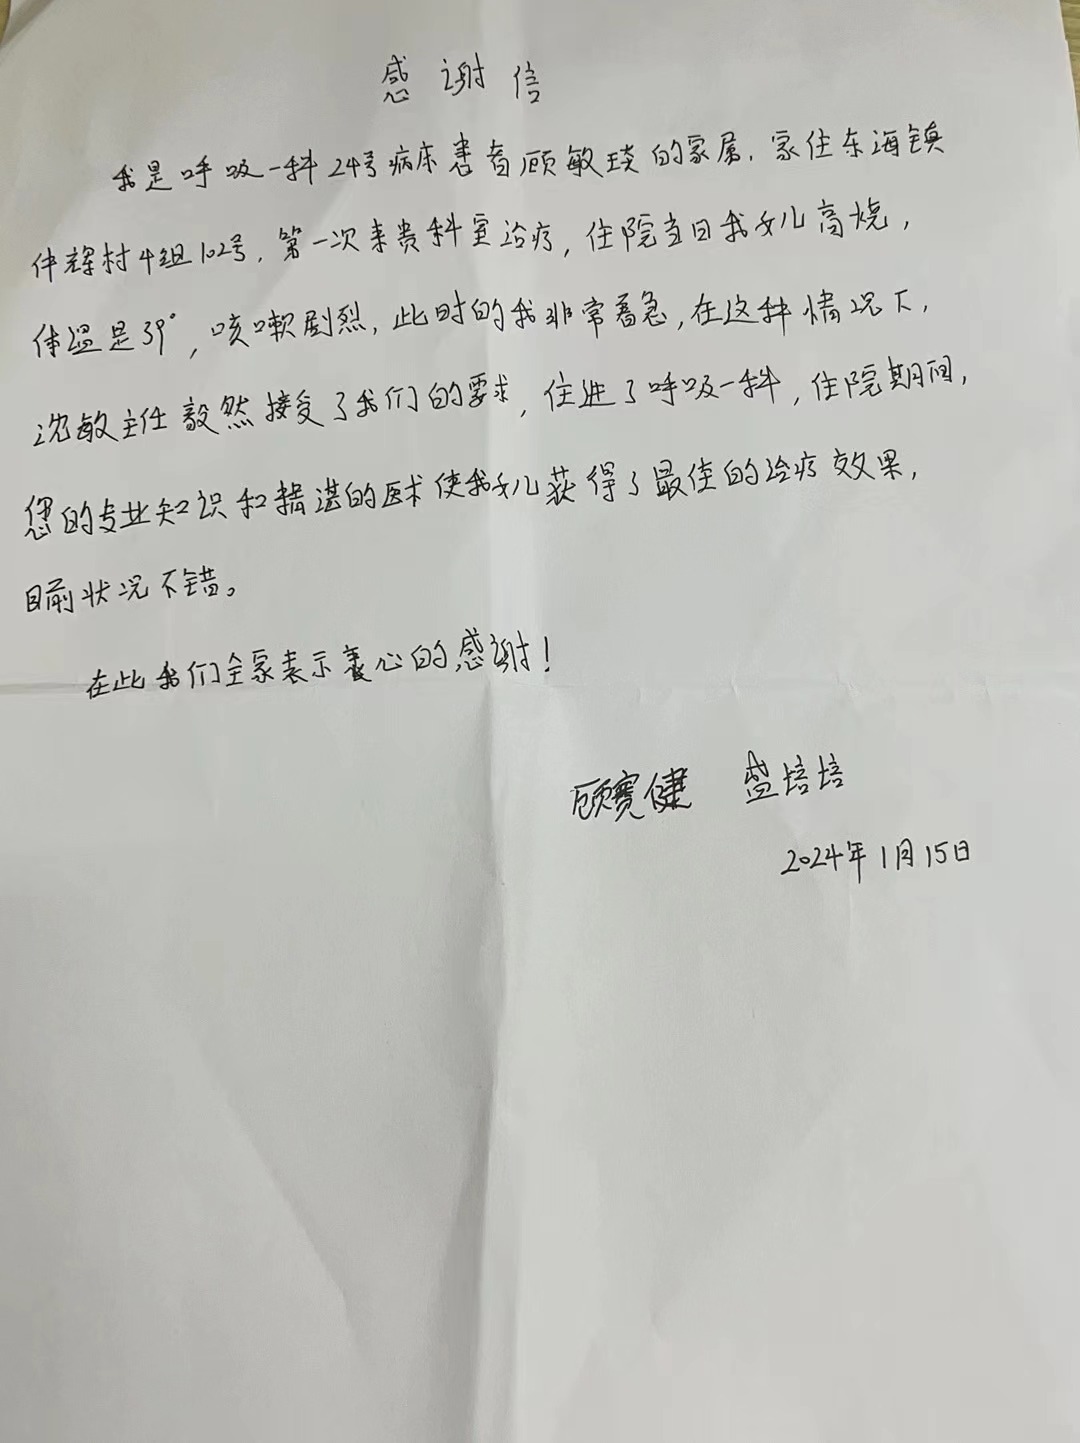 感谢信
我是呼吸一科24号病床患者顾敏琰的家属，家住东海镇
仲辉村4组102号，第一次来贵科室治疗，住院当日我女儿高烧，
体温是39°，咳嗽剧烈，此时的我非常着急，在这种情况下，
沈敏主任毅然接受了我们的要求，住进了呼吸一科，住院期间，
您的专业知识和精湛的医术使我女儿获得了最佳的治疗效果，
目前状况不错。
在此我们全家表示衷心的感谢！
顾宾健 盛培培
2024年1月15日